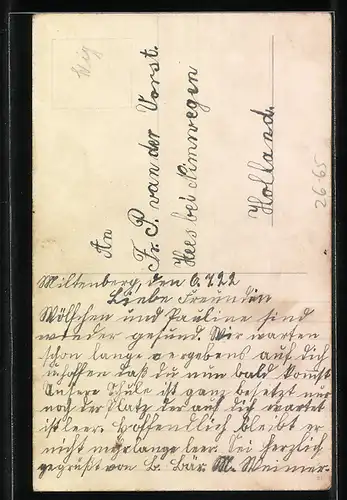 An
Fr. P. van der Vorst.
Hees bei Nimwegen
Holland.
26-65
Miltenberg, den 6.7.22
Liebe Freundin
Wölfchen und Pauline sind
wieder gesund. Wir warten
schon lange vergebens auf dich
u. hoffen daß du nun bald kommst
Unsere Schule ist ganz besetzt nur
noch der Platz der auf dich wartet
ist leer. Hoffendlich bleibt er
nicht mehr lange leer. Sei herzlich
gegrüßt von b. Bär. M. Weimer.